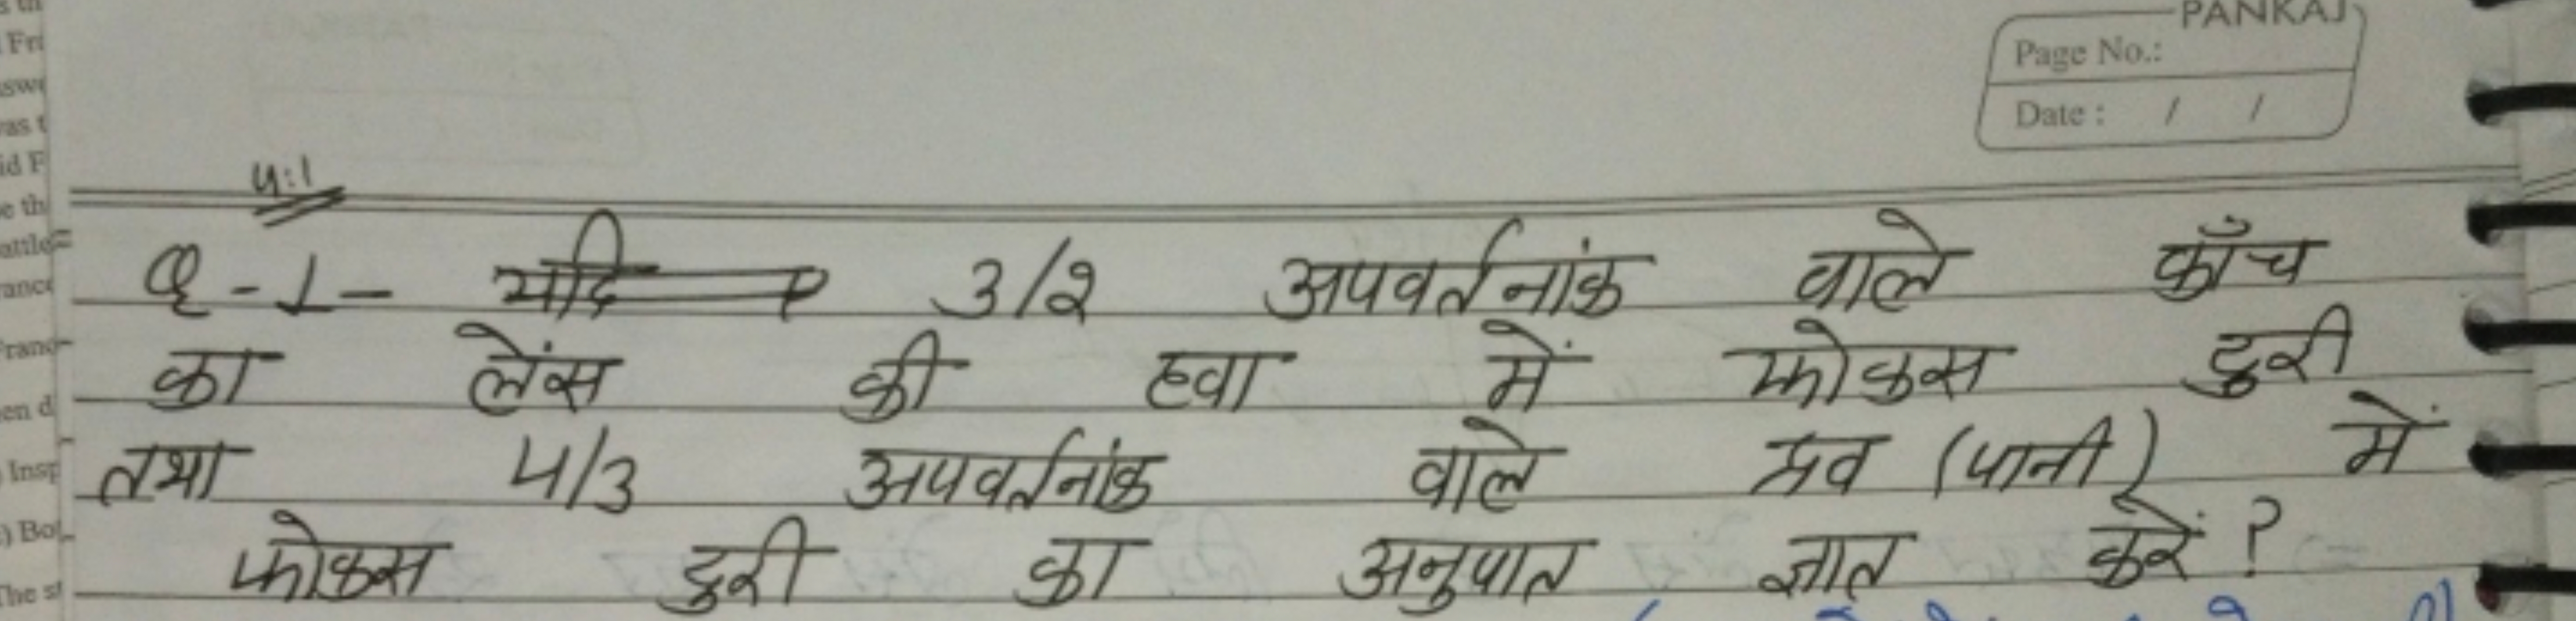 PANKAJ
Page No.:
Date : / /
4:1
Q-1- 3/2 अपवर्तनांक वाले काँच
का लेंस की हवा में फोकस दुरी
तथा 4/3 अपवर्तनांक वाले द्रव (पानी) में
फोकस दुरी का अनुपात ज्ञात करें ?